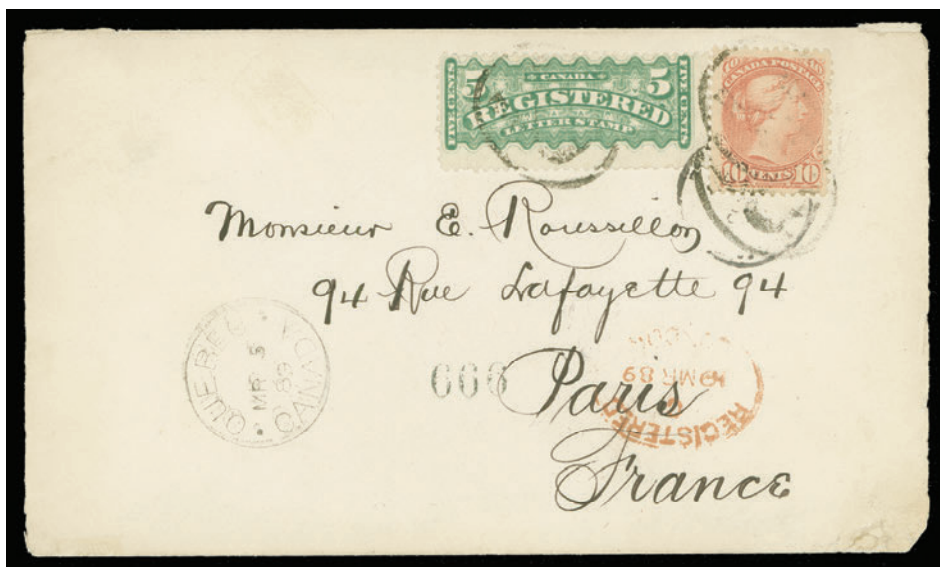 CANADA
5 REGISTERED 5
LETTER STAMP
FIVE CENTS
FIVE CENTS
CANADA POSTAGE
10 CENTS 10
Monsieur E. Roussillon
94 Rue Lafayette 94
Paris
France
QUEBEC · CANADA ·
MR 5
89
666
REGISTERED
MR 89